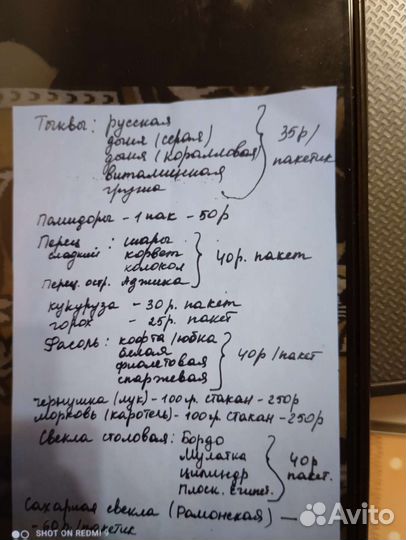 Тыквы: русская
дыня (серая)
дыня (коралловая)
витаминная
груша
35р/
пакетик
Помидоры - 1 пак - 50р
Перец сладкий: шары
корвет
колокол
Перец. остр. Аджика
40р. пакет
кукуруза - 30р. пакет
горох - 25р. пакет
Фасоль: кофта/юбка
белая
фиолетовая
спаржевая
40р/пакет
чернушка (лук) - 100гр. стакан - 250р
Морковь (каротель) - 100гр. стакан - 250р
Свекла столовая: Бордо
Мулатка
цилиндр
плоск. египет.
40р
пакет.
Сахарная свекла (Рамонская) -
- 60р/пакетик
SHOT ON REDMI 9
Avito